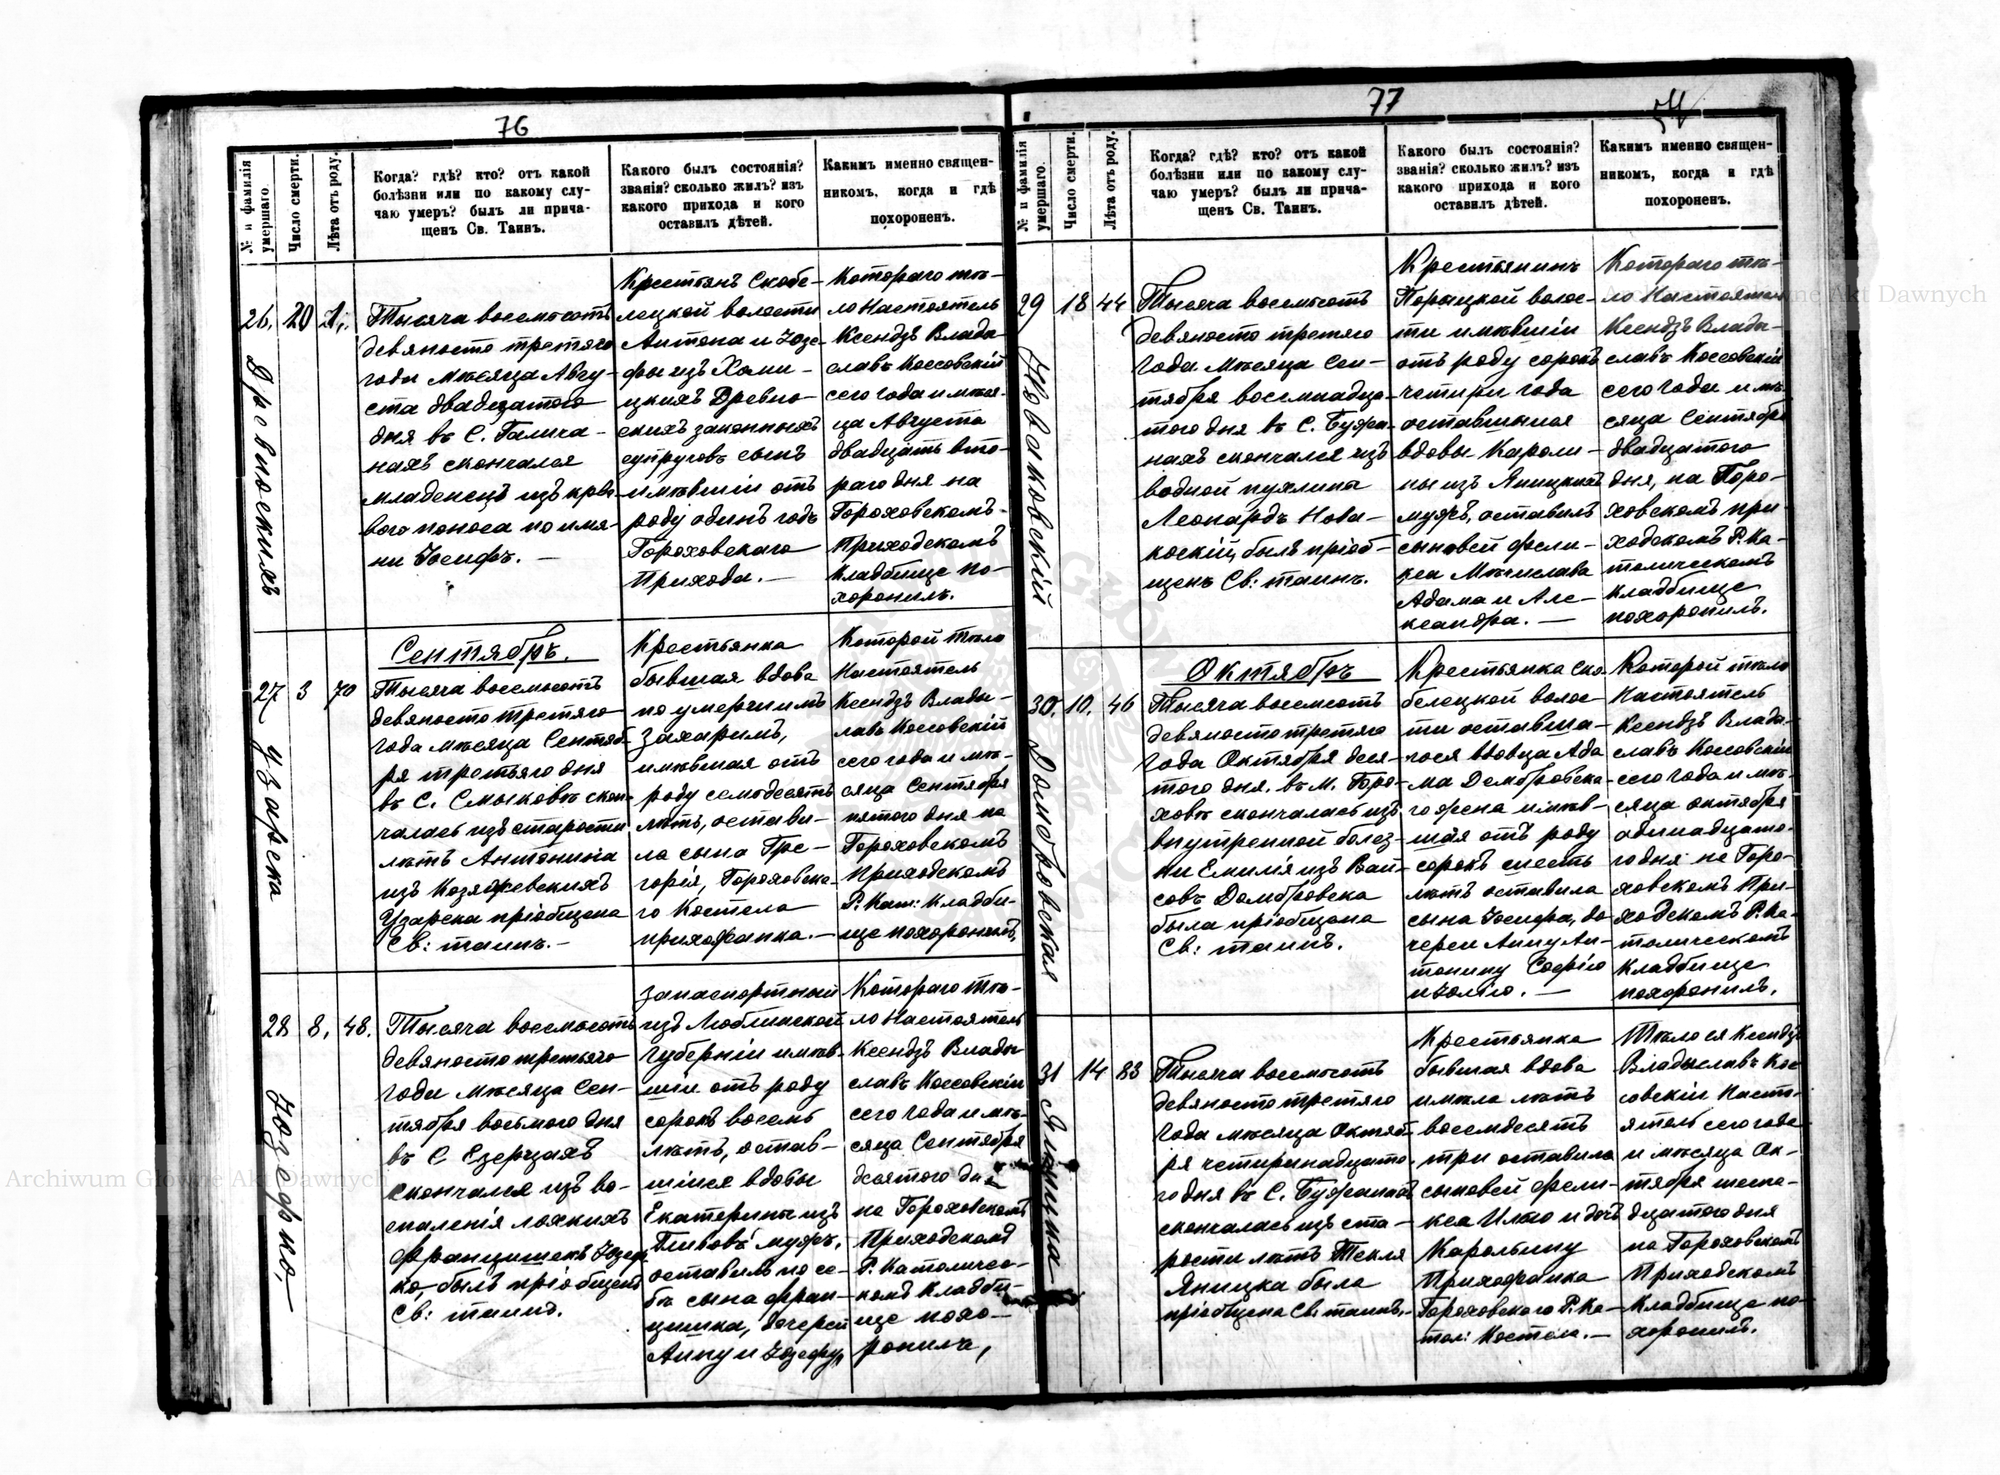 76
№ и фамилія умершаго.
Число смерти.
Лѣта отъ роду.
Когда? гдѣ? кто? отъ какой
болѣзни или по какому слу-
чаю умеръ? былъ ли прича-
щенъ Св. Таинъ.
Какого былъ состоянія?
званія? сколько жилъ? изъ
какого прихода и кого
оставилъ дѣтей.
Каким­ъ именно священ-
никомъ, когда и гдѣ
похороненъ.
26.
20
1.
Древноскихъ
Тысяча восемьсотъ
девяносто третяго
года мѣсяца Авгу-
ста двадцатого
дня въ С. Галича-
нахъ скончался
младенецъ изъ крва-
вого поноса по имя-
ни Іосифъ. —
Крестьянъ Скобе-
лецкой волости
Антона и Юзе-
фы изъ Хами-
цкихъ Древно-
скихъ законныхъ
супруговъ сынъ
имѣвшій отъ
роду одинъ годъ
Гороховскаго
Прихода. —
Котораго тѣ-
ло Настоятель
Ксендзъ Влады
славъ Коссовскій
сего года и мѣся-
ца Августа
двадцать вто-
раго дня на
Гороховскомъ
Приходскомъ
Кладбище по-
хоронилъ.
Сентябрь.
27
3
70
Узарска
Тысяча восемьсотъ
девяносто третяго
года мѣсяца Сентяб-
ря третьяго дня
въ С. Смыковѣ скон-
чалась изъ старости
лѣтъ Антонина
изъ Козяжевскихъ
Узарска пріобщена
Св: таинъ. —
Крестьянка
бывшая вдова
по умершимъ
Захаримъ,
имѣвшая отъ
роду семьдесятъ
лѣтъ, остави-
ла сына Гре-
горія, Гороховска-
го Костела
прихожанка. —
Которой тѣло
Настоятель
Ксендзъ Влады-
славъ Коссовскій
сего года и мѣ-
сяца Сентября
пятого дня на
Гороховскомъ
Приходскомъ
Р. Кат: кладби-
ще похоронилъ,
28
8,
48.
Юзефко, —
Тысяча восемьсотъ
девяносто третьяго
года мѣсяца Сен-
тября восьмого дня
въ С. Езерцахъ
скончался изъ во-
спаленія лохкихъ
Францишекъ Юзеф
ко, былъ пріобщенъ
Св: таинъ.
Запаспортный
изъ Люблинской
Губерніи имѣв-
шій отъ роду
сорокъ восемь
лѣтъ, остав-
шійся вдовы
Екатерины изъ
мужъ,
оставилъ по се-
бѣ сына Фран-
цишка, дочерей
Анну и Юзефу,
Котораго тѣ-
ло Настоятель
Ксендзъ Влады
славъ Коссовскій
сего года и мѣ-
сяца Сентября
десятого дня
на Гороховскомъ
Приходскомъ
Р. Католичес-
комъ Кладби-
ще похо-
ронилъ,
77
№ и фамилія умершаго.
Число смерти.
Лѣта отъ роду.
Когда? гдѣ? кто? отъ какой
болѣзни или по какому слу-
чаю умеръ? былъ ли прича-
щенъ Св. Таинъ.
Какого былъ состоянія?
званія? сколько жилъ? изъ
какого прихода и кого
оставилъ дѣтей.
Какимъ именно священ-
никомъ, когда и гдѣ
похороненъ.
29
18
44
Новаковскій
Тысяча восемьсотъ
девяносто третяго
года Мѣсяца Сен-
тября восемнадца-
того дня въ С. Бужа-
нахъ скончался изъ
водной пухлины
Леонардъ Нова-
коскій, былъ пріоб-
щенъ Св: таинъ.
Крестьянинъ
Порыцкой волос-
ти имѣвшій
отъ роду сорокъ
четыри года
оставшыяся
вдовы Кароли-
ны изъ Яницкихъ
мужъ, оставилъ
сыновей Фели-
кса Мѣчислава
Адама и Але-
ксандра. —
Котораго тѣ-
ло Настоятель
Ксендзъ Влады-
славъ Коссовскій
сего года и мѣ-
сяца Сентября
двадцатого
дня, на Горо-
ховскомъ при-
ходскомъ Р. Ка-
толическомъ
кладбище
похоронилъ.
Октябрь
30.
10.
46
Домбровская
Тысяча восемьсотъ
девяносто третяго
года Октября деся-
того дня. въ М. Горо-
ховѣ скончалась изъ
внутренной болез-
ни Емилія изъ Вай-
совъ Домбровска
была пріобщена
Св: таинъ.
Крестьянка Ско-
белецкой волос-
ти оставша-
гося вдовца Ада
ма Домбровска-
го жена имѣв-
шая отъ роду
сорокъ шесть
лѣтъ оставила
сына Іосифа, до-
череи Анну Ан-
тонину Софію
и Юлію. —
Которой тѣло
Настоятель
Ксендзъ Влады-
славъ Коссовскій
сего года и мѣ-
сяца октября
одинадцато-
го дня на Горо-
ховскомъ При-
ходскомъ Р. Ка-
толическомъ
Кладбище
похоронилъ.
31
14
83
Яницка
Тысяча восемьсотъ
девяносто третяго
года мѣсяца Октяб-
ря четиринадцато-
го дня въ С. Бужанахъ
скончалась изъ ста-
рости лѣтъ Текля
Яницка была
пріобщена Св. таинъ. -
Крестьянка
бывшая вдова
имѣла лѣтъ
восемдесятъ
три оставила
сыновей Фели-
кса Илью и дочь
Карольину
Прихожанка
Гороховского Р. Ка-
тол: Костела. —
Тѣло ея Ксендзъ
Владыславъ Кос
совскій Насто-
ятель сего года
и мѣсяца Ок-
тября шесна-
дцатого дня
на Гороховскомъ
Приходскомъ
Кладбище по-
хоронилъ.
Archiwum Główne Akt Dawnych
Archiwum Główne Akt Dawnych